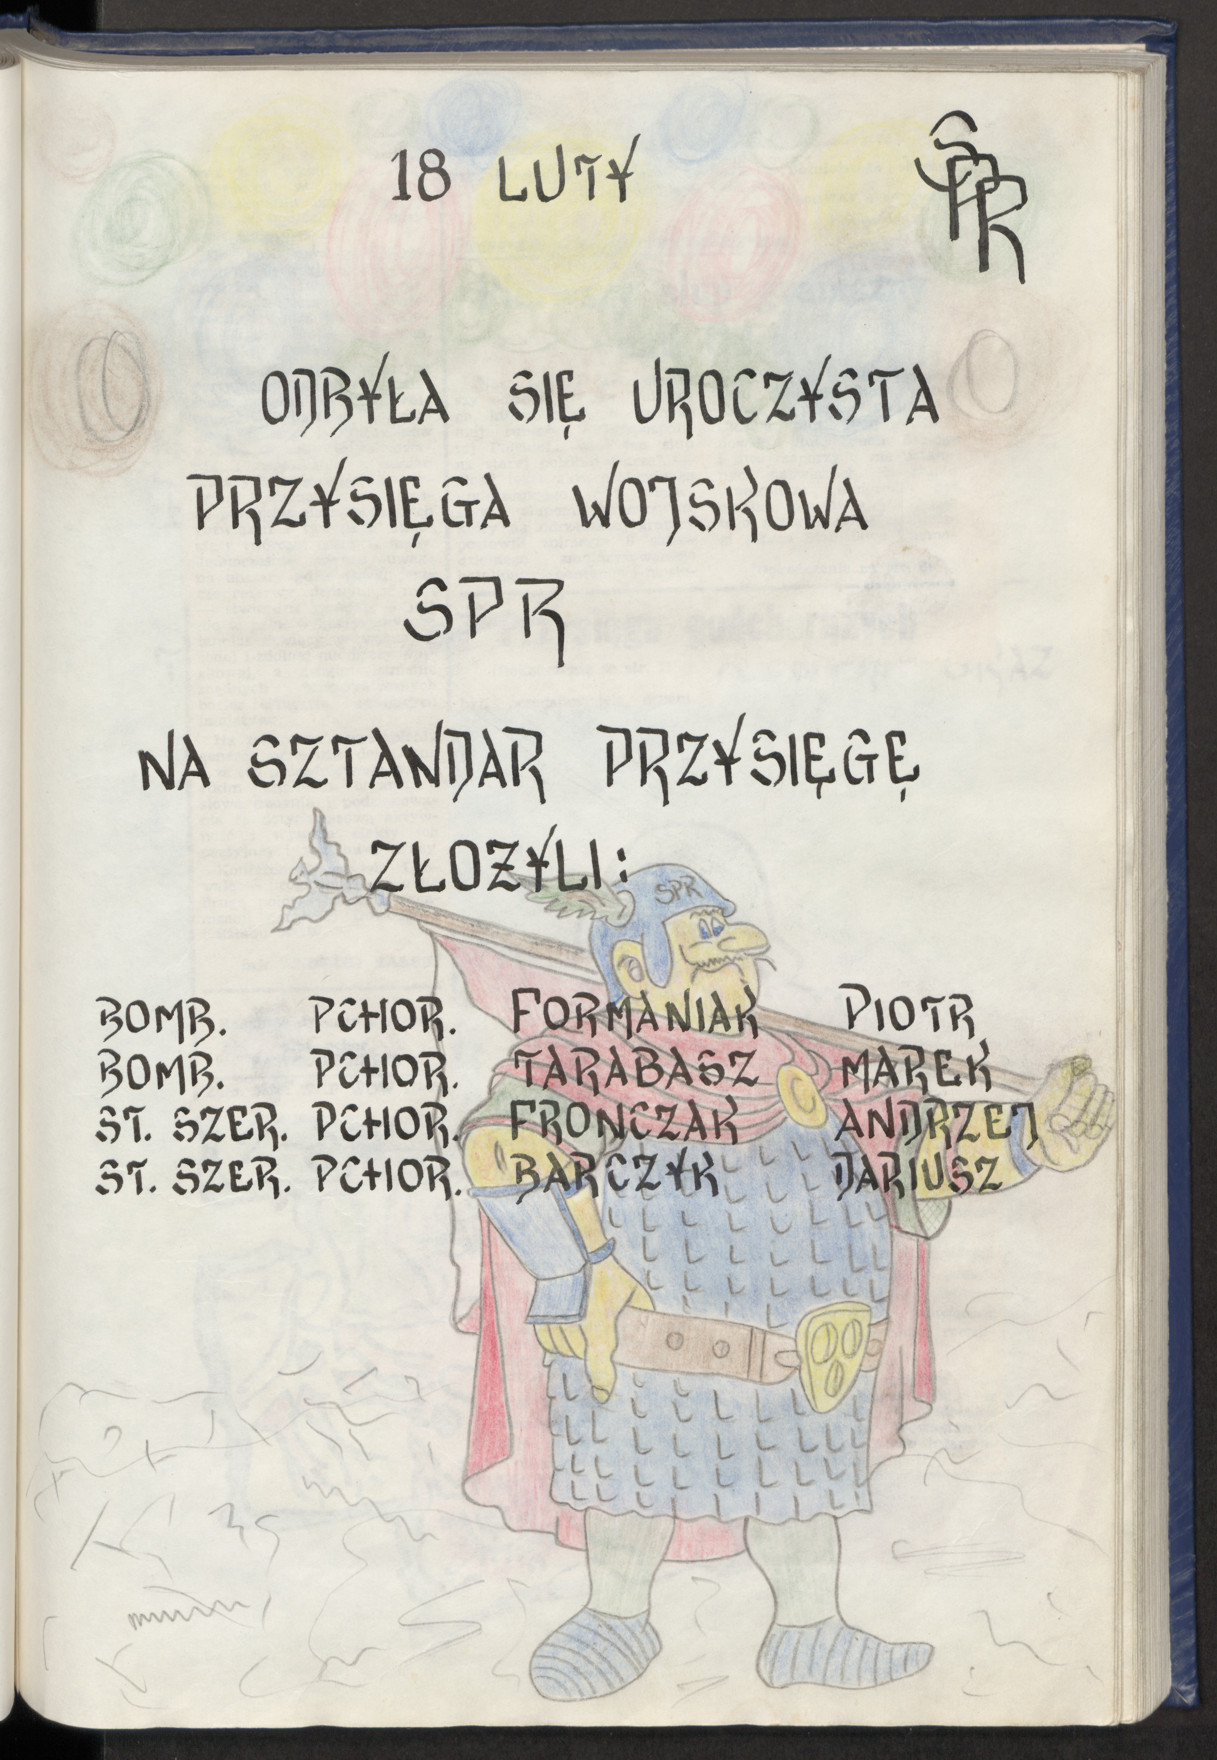 18 LUTY
SPR
ODBYŁA SIĘ UROCZYSTA
PRZYSIĘGA WOJSKOWA
SPR
NA SZTANDAR PRZYSIĘGĘ
ZŁOŻYLI:
SPR
BOMB. PCHOR. FORMANIAK PIOTR
BOMB. PCHOR. TARABASZ MAREK
ST. SZER. PCHOR. FRONCZAK ANDRZEJ
ST. SZER. PCHOR. BARCZYK DARIUSZ